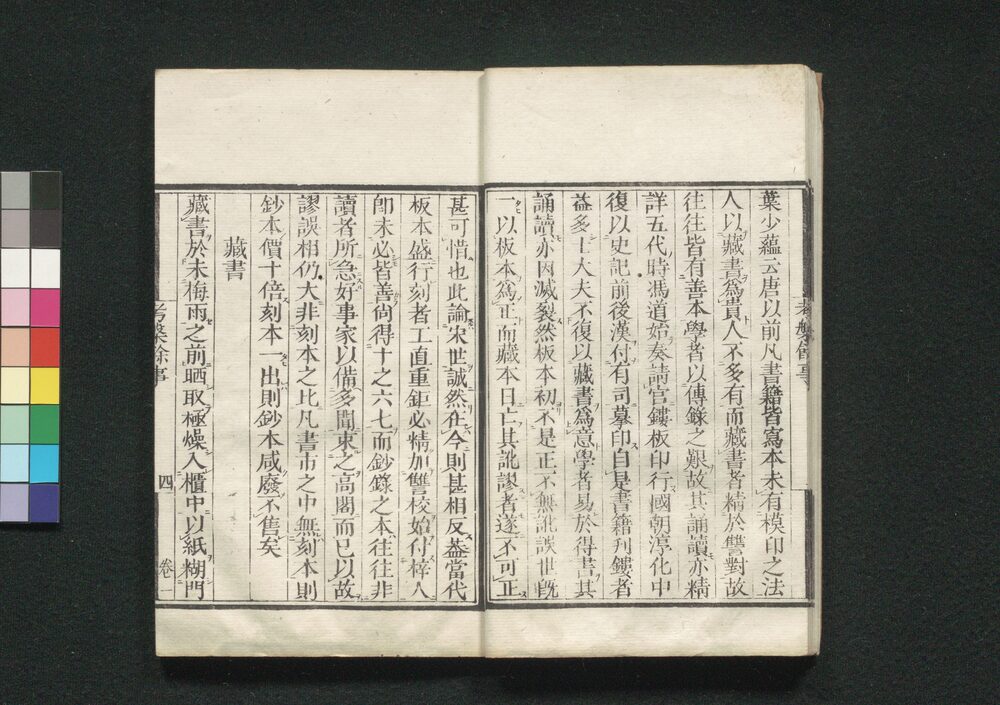 葉少蘊云唐以前凡書籍皆寫本未有模印之法
人以藏書爲貴人不多有而藏書者精於讐對故
往往皆有善本學者以傳錄之艱故其誦讀亦精
詳五代時馮道始奏請官鏤板印行國朝淳化中
復以史記前後漢付有司摹印自是書籍刊鏤者
益多士大夫不復以藏書爲意學者易於得書其
誦讀亦因滅裂然板本初不是正不無訛誤世旣
一以板本爲正而藏本日亡其訛謬者遂不可正
甚可惜也此論宋世誠然在今則甚相反葢當代
板本盛行刻者工直重鉅必精加讐校始付梓人
卽未必皆善尙得十之六七而鈔錄之本往往非
讀者所急好事家以備多聞束之高閣而已以故
謬誤相仍大非刻本之比凡書市之中無刻本則
鈔本價十倍刻本一出則鈔本咸廢不售矣
藏書
藏書於未梅雨之前晒取極燥入櫃中以紙糊門
考槃餘事
四
卷一